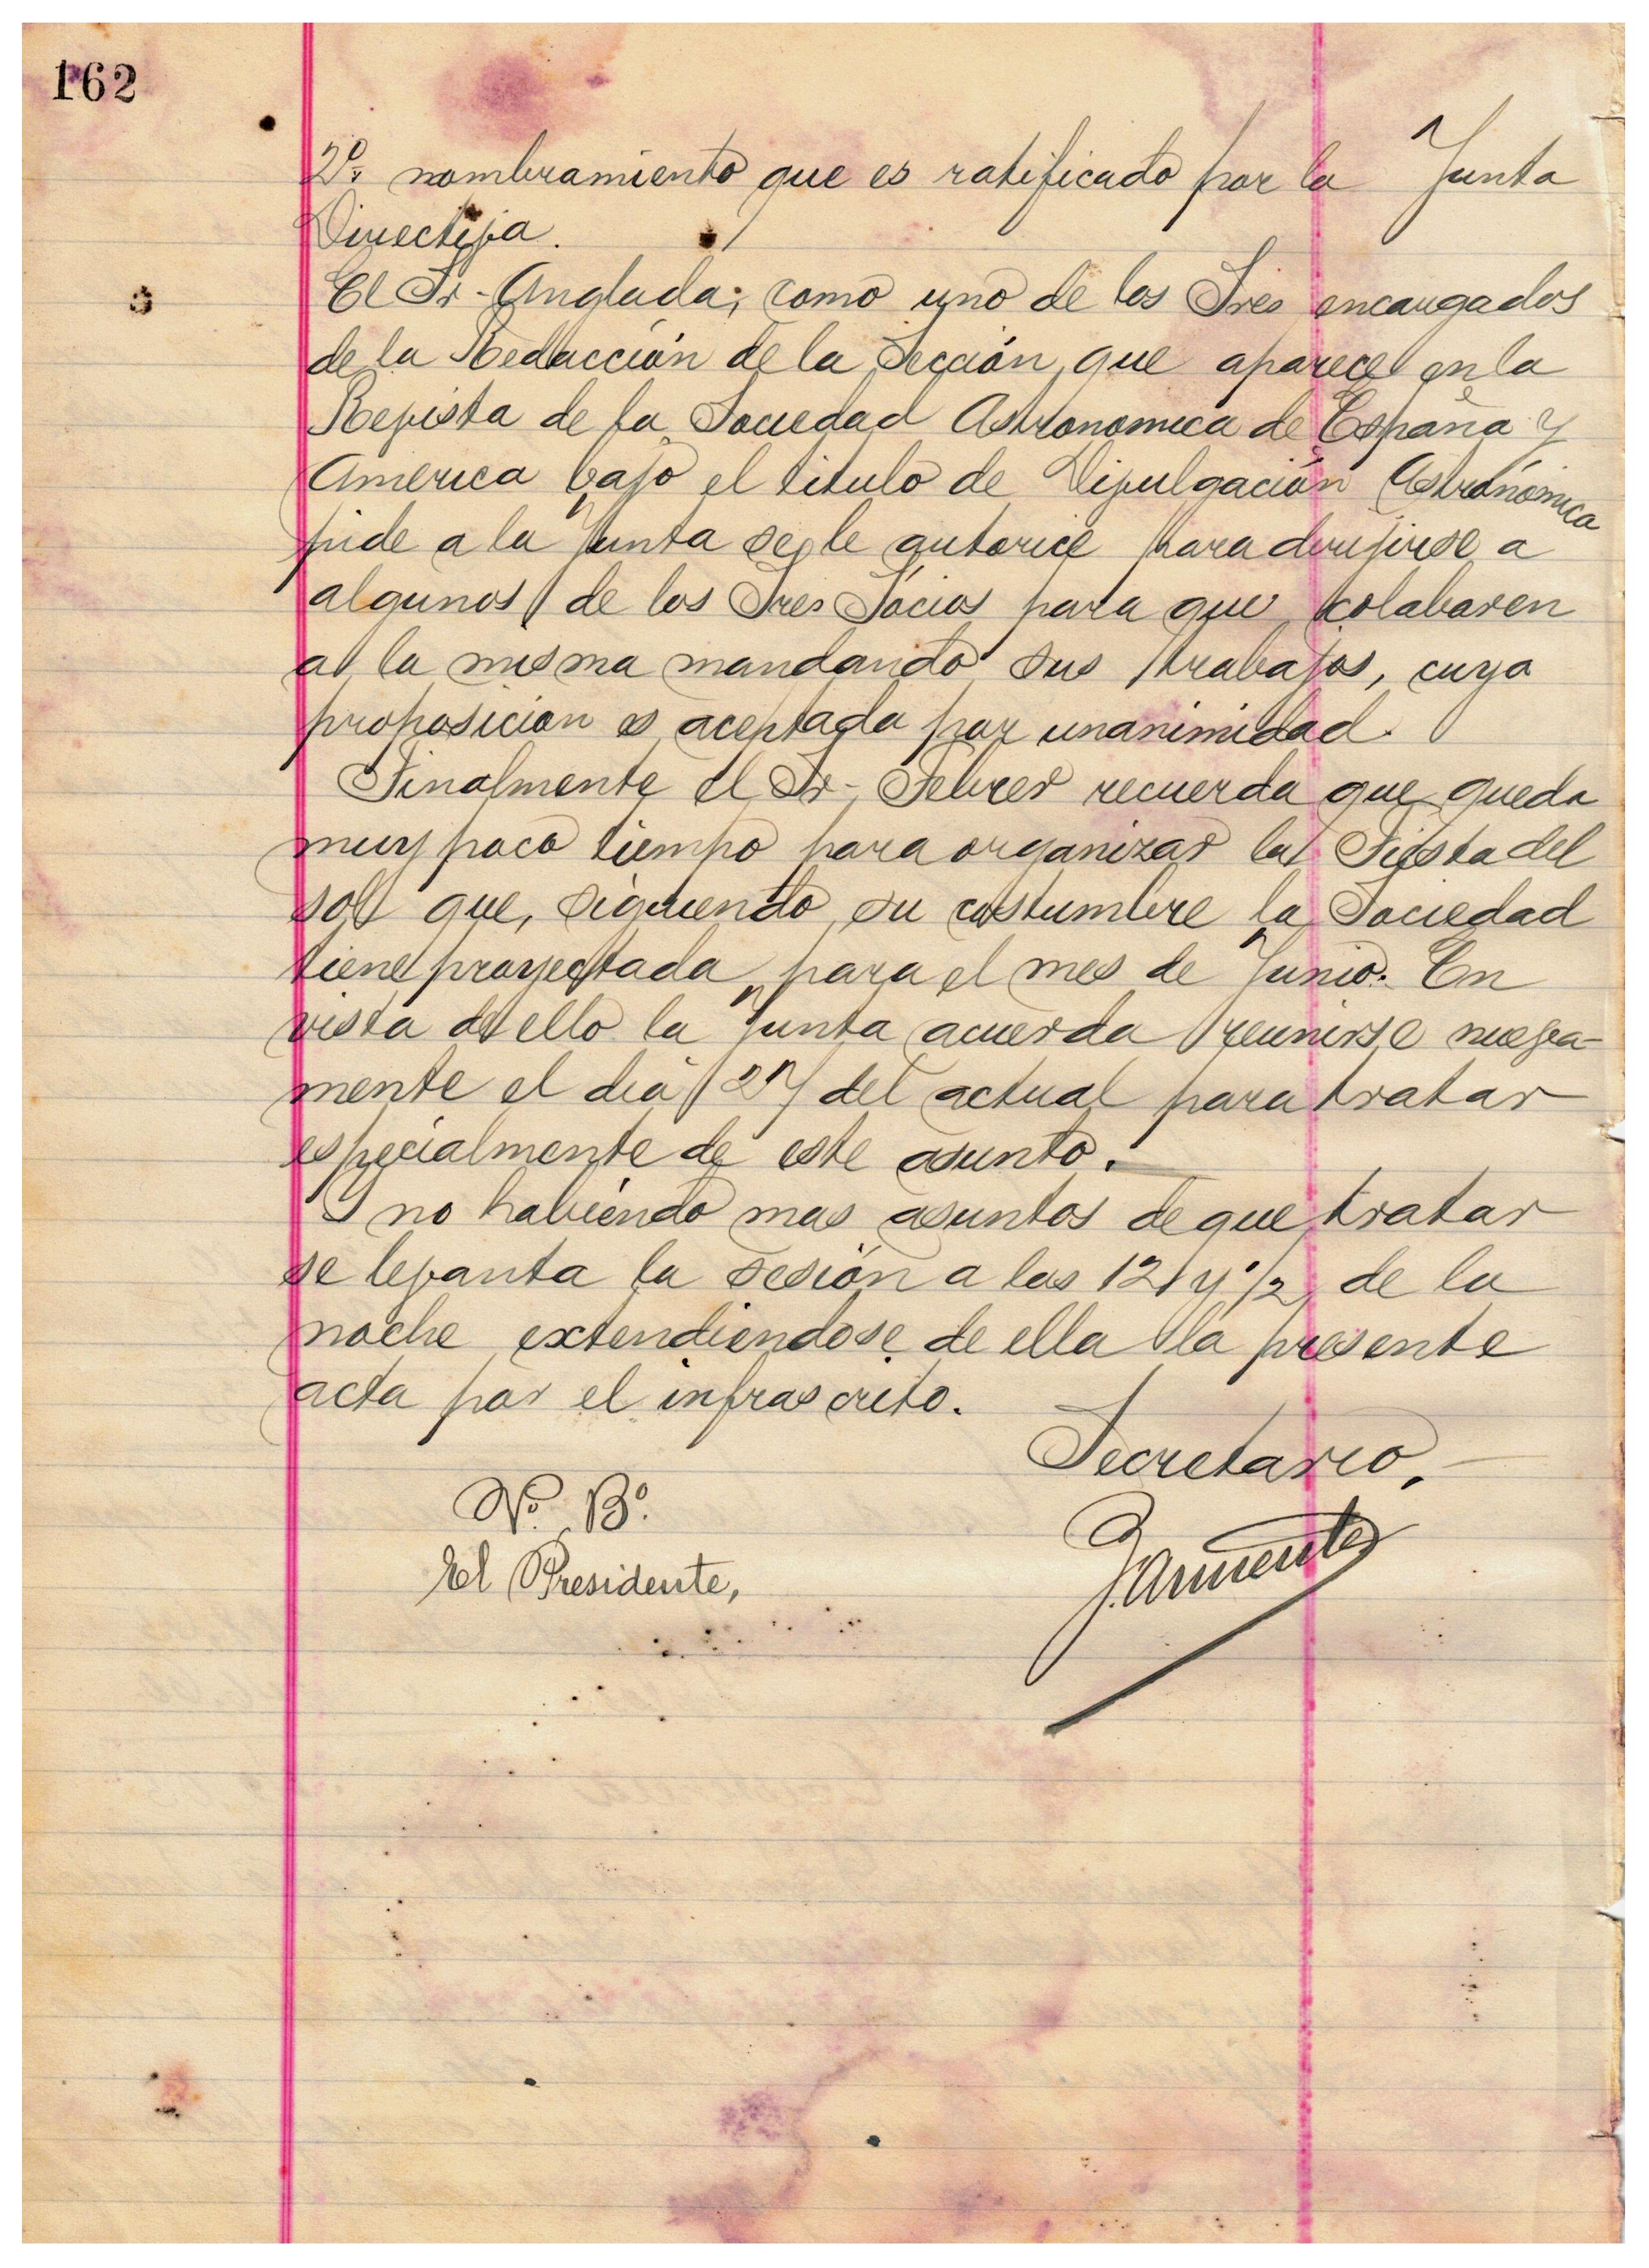 162
2º: nombramiento que es ratificado por la Junta
Directiva.
El Sr. Anglada, como uno de los Sres encargados
de la Redacción de la Sección que aparece en la
Revista de la Sociedad Astronomica de España y
America bajo el titulo de Divulgación Astronómica
pide a la Junta se le autorice para dirijirse a
algunos de los Sres Sócios para que colaboren
a la misma mandando sus trabajos, cuya
proposicion es aceptada por unanimidad.
Finalmente el Sr. Febrer recuerda que queda
muy poco tiempo para organizar la Fiesta del
sol que, siguiendo su costumbre la Sociedad
tiene proyectada para el mes de Junio. En
vista de ello la Junta acuerda reunirse nueva-
mente el dia 27 del actual para tratar
especialmente de este asunto.
Y no habiendo mas asuntos de que tratar
se levanta la sesión a las 12 y 1/2 de la
noche extendiendose de ella la presente
acta por el infrascrito.
Secretario,
Vº Bº
El Presidente,
J. Armenter